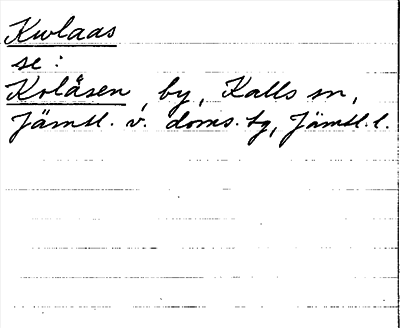 Kwlaas
se:
Kolåsen, by, Kalls sn,
Jämtl. v. doms. tg, Jämtl. l.